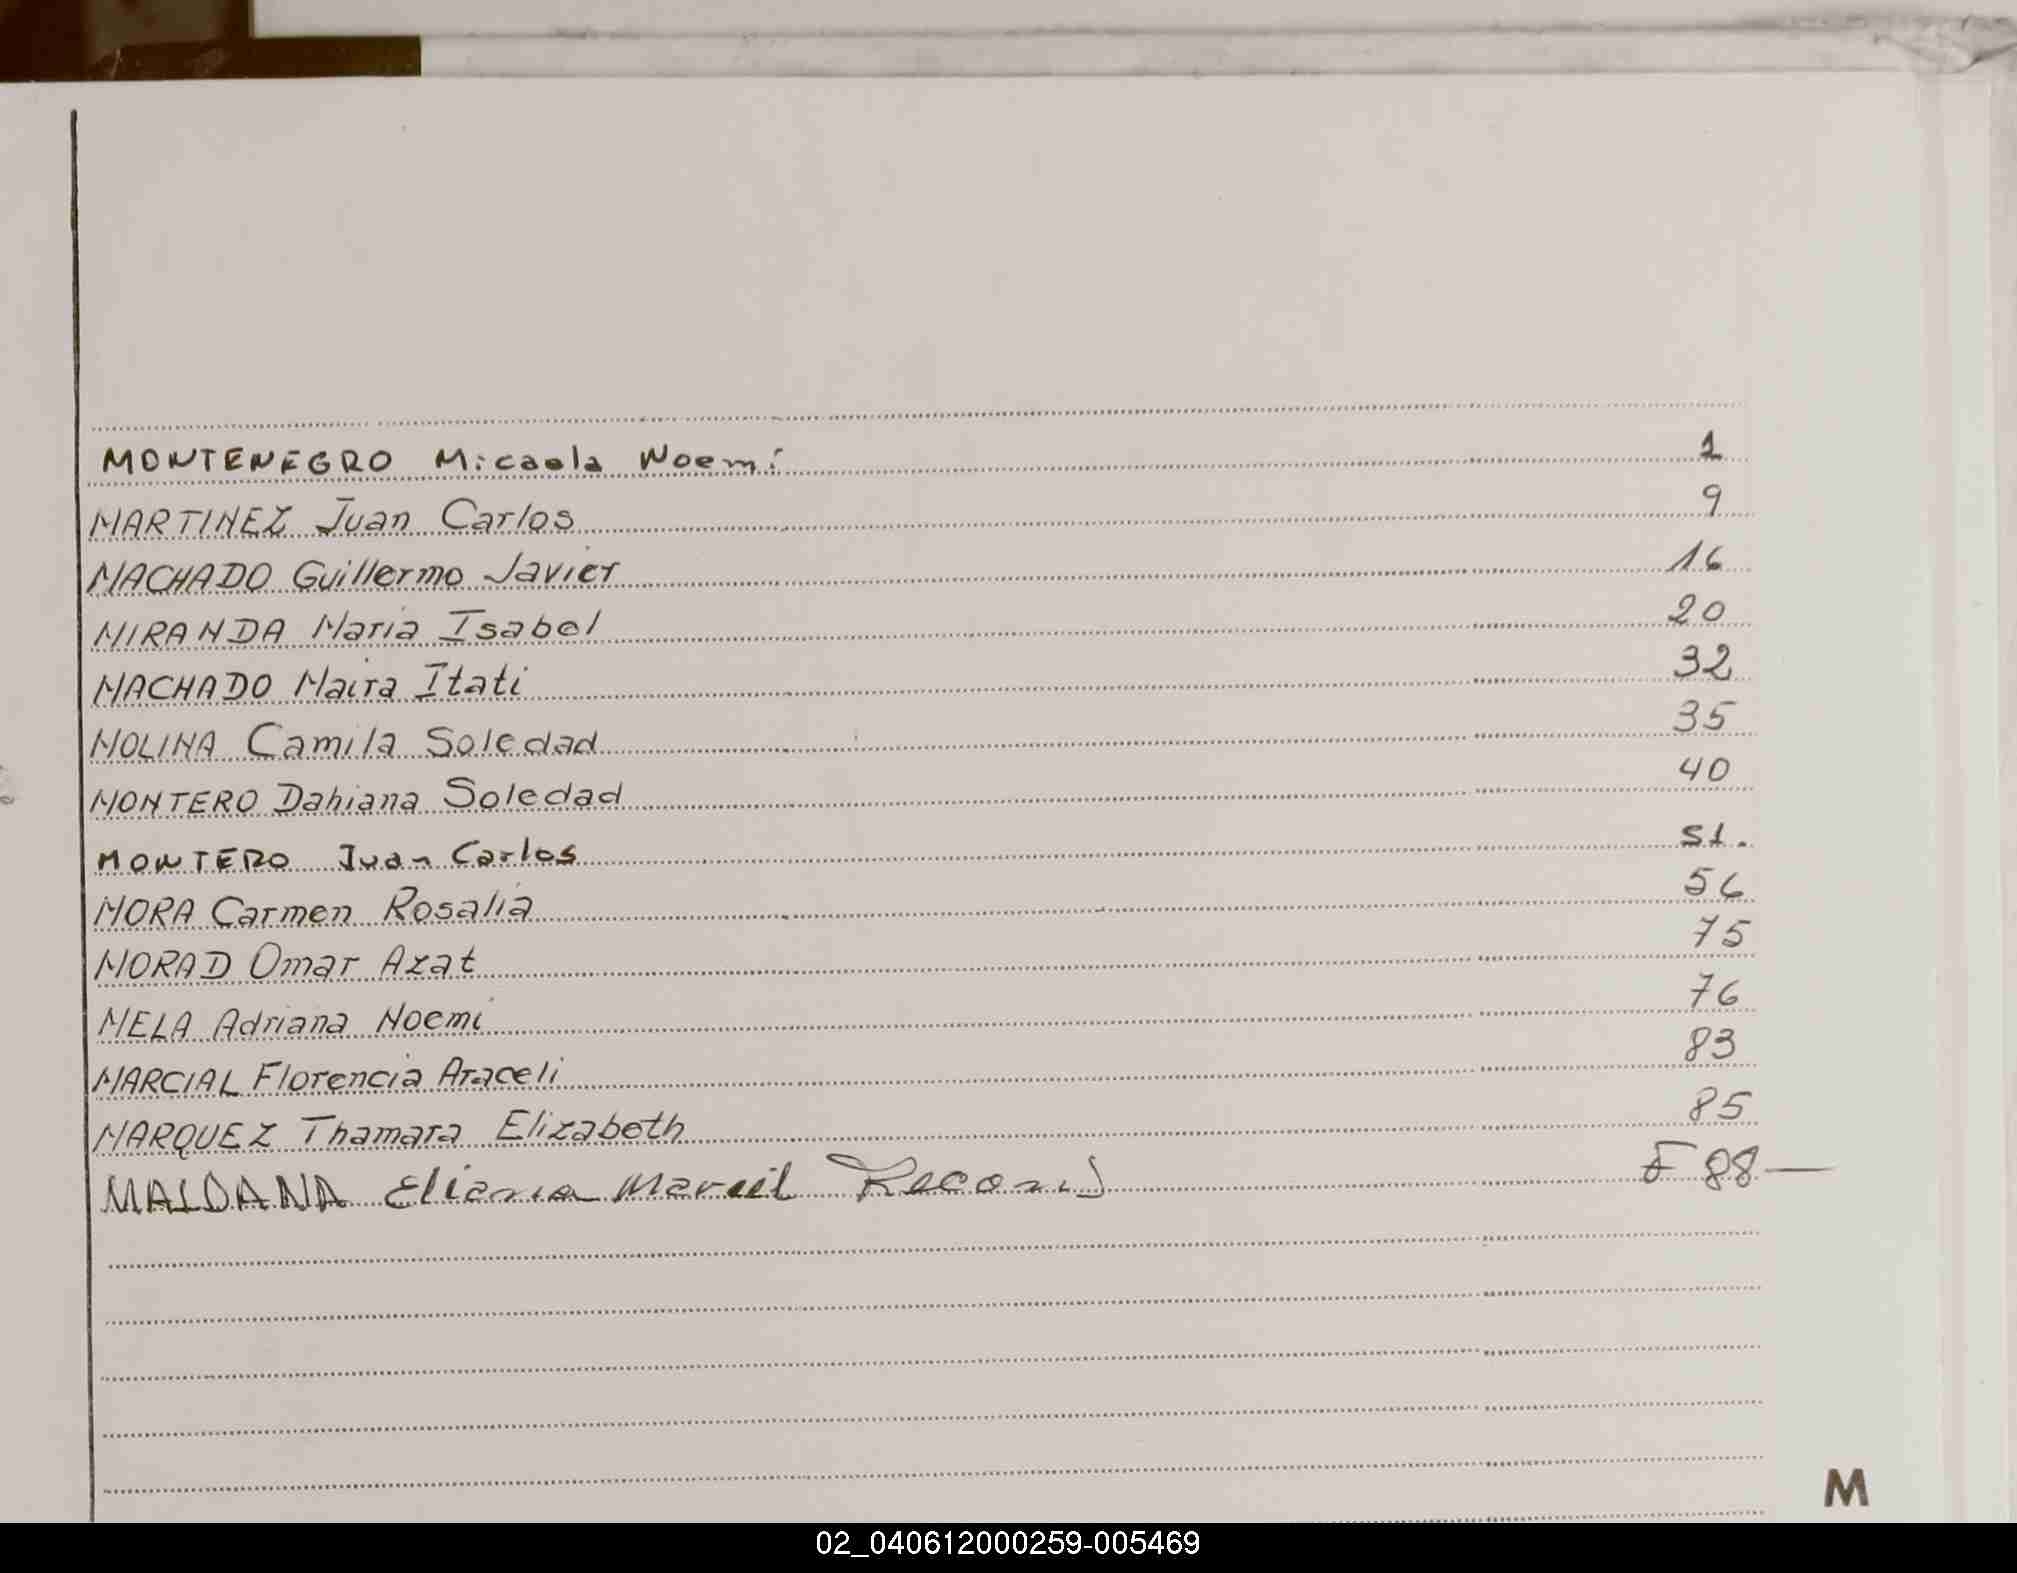 MONTENEGRO Micaela Noemí 1
MARTINEZ Juan Carlos 9
MACHADO Guillermo Javier 16
MIRANDA Maria Isabel 20
MACHADO Maira Itati 32
MOLINA Camila Soledad 35
MONTERO Dahiana Soledad 40
MONTERO Juan Carlos 51.
MORA Carmen Rosalia 56
MORAD Omar Azat 75
MELA Adriana Noemi 76
MARCIAL Florencia Araceli 83
MARQUEZ Thamara Elizabeth 85
MALDANA Eliana F 88
M
02_040612000259-005469